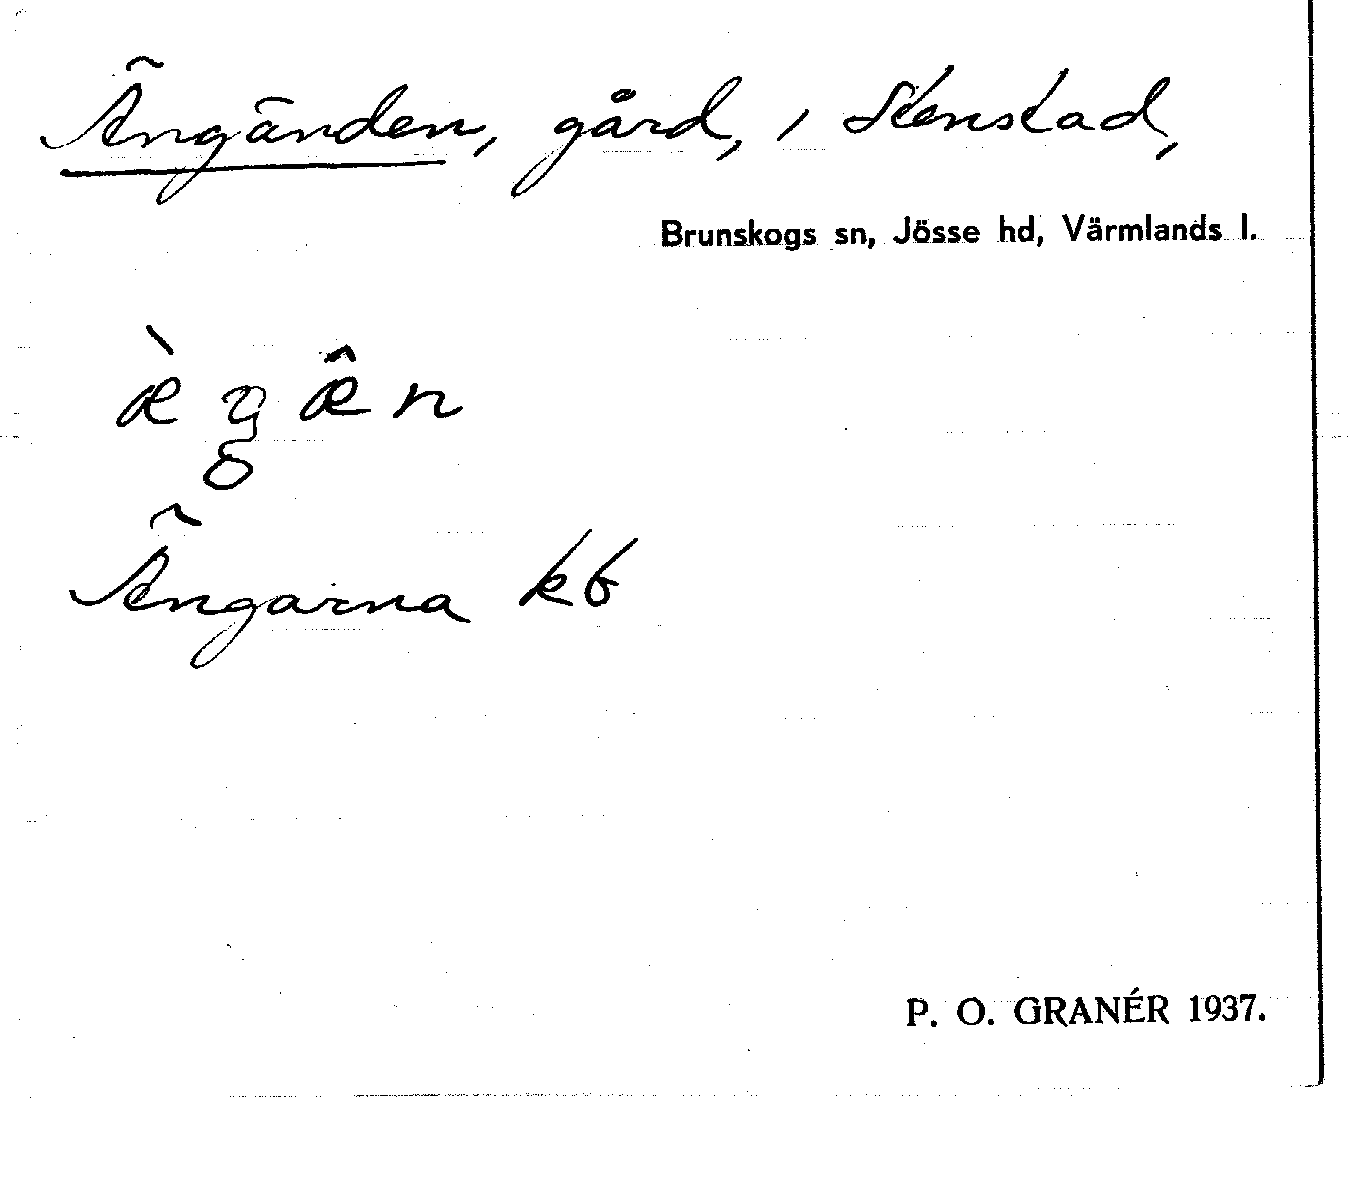 Ängänden, gård, i Stenstad,
Brunskogs sn, Jösse hd, Värmlands l.
Ängarna kb
P. O. GRANÉR 1937.